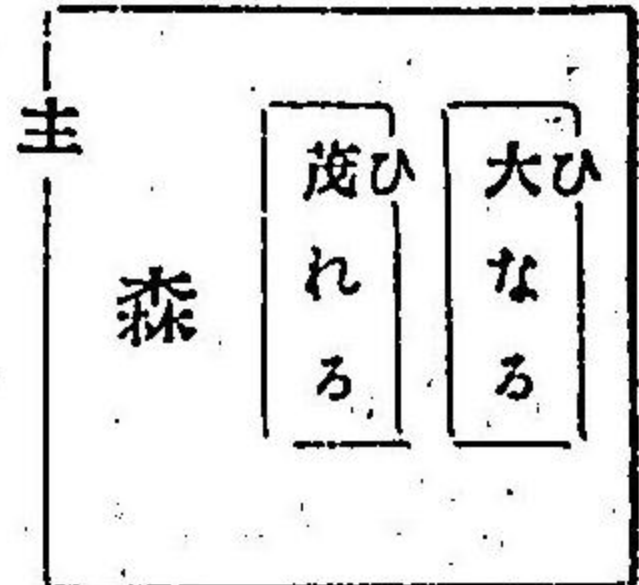 ひ
大なる
ひ
茂れる
森
主